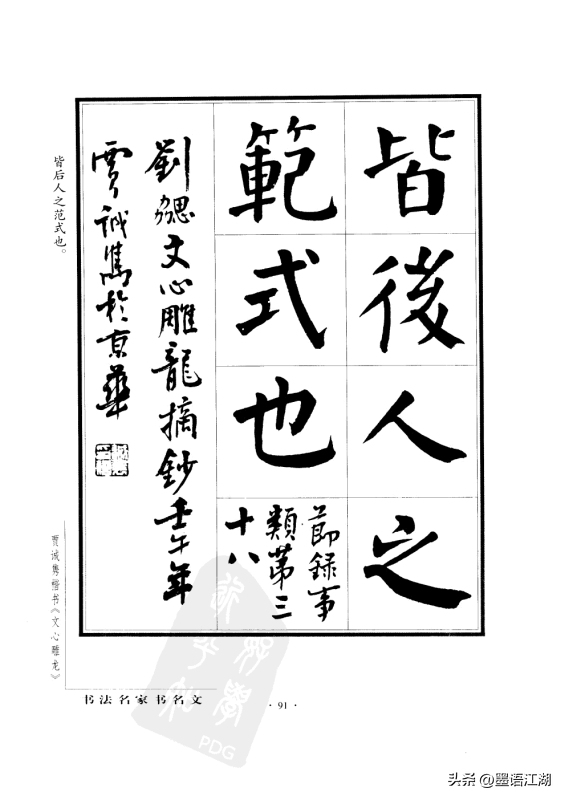 皆後人之
範式也
節録事
類第三
十八
劉勰文心雕龍摘鈔壬午年
賈誠雋於京華
皆后人之范式也。
贾诚隽楷书《文心雕龙》
书法名家书名文
·91·
PDG
头条@墨语江湖